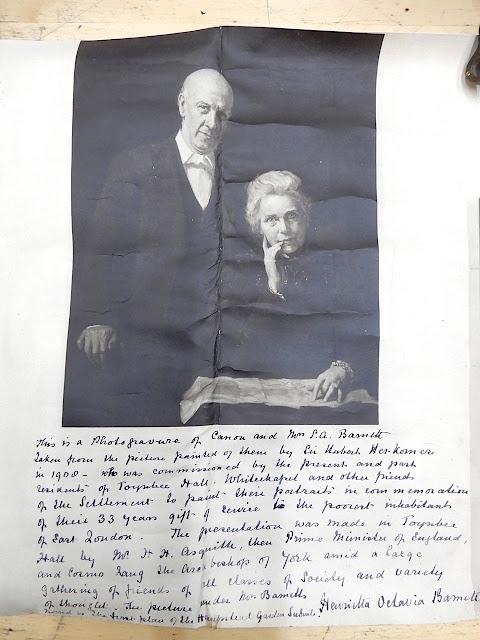 This is a Photogravure of Canon and Mrs S. A. Barnett
taken from the picture painted of them by Sir Hubert Herkomer
in 1908 - who was commissioned by the present and past
residents of Toynbee Hall. Whitechapel and other friends
of the Settlement to paint their portraits in commemoration
of their 33 years gift of service to the poorest inhabitants
of East London. The presentation was made in Toynbee
Hall by Mr H. H. Asquith, then Prime Minister of England,
and Cosmo Lang the Archbishop of York amid a large
gathering of friends of all classes of Society and variety
of thought. The picture under Mrs Barnetts
is the plan of the Hampstead Garden Suburb.
Henrietta Octavia Barnett